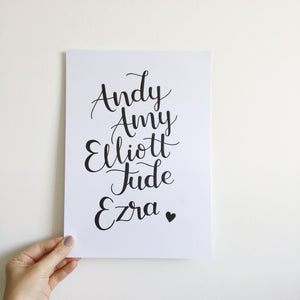 Andy
Amy
Elliott
Jude
Ezra